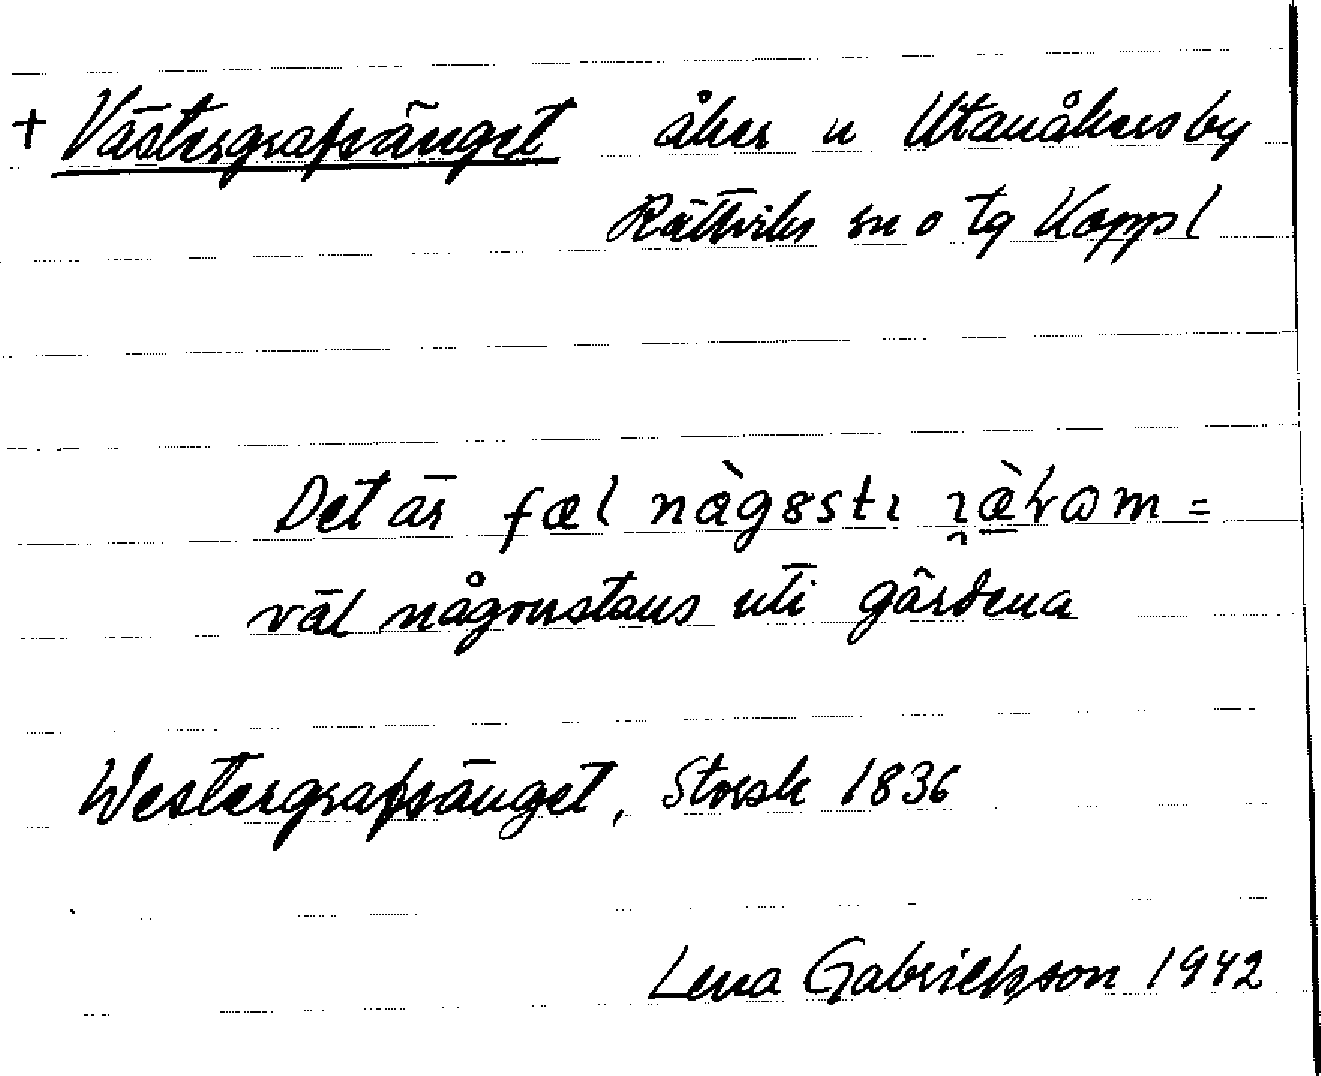 + Västergrafsänget åker u Utanåkersby
Rättviks sn o tg Koppl
Det är fæl nàgɞstı =
väl någonstans uti gärdena
Westergrafsänget, Storsk 1836
Lena Gabrielsson 1942